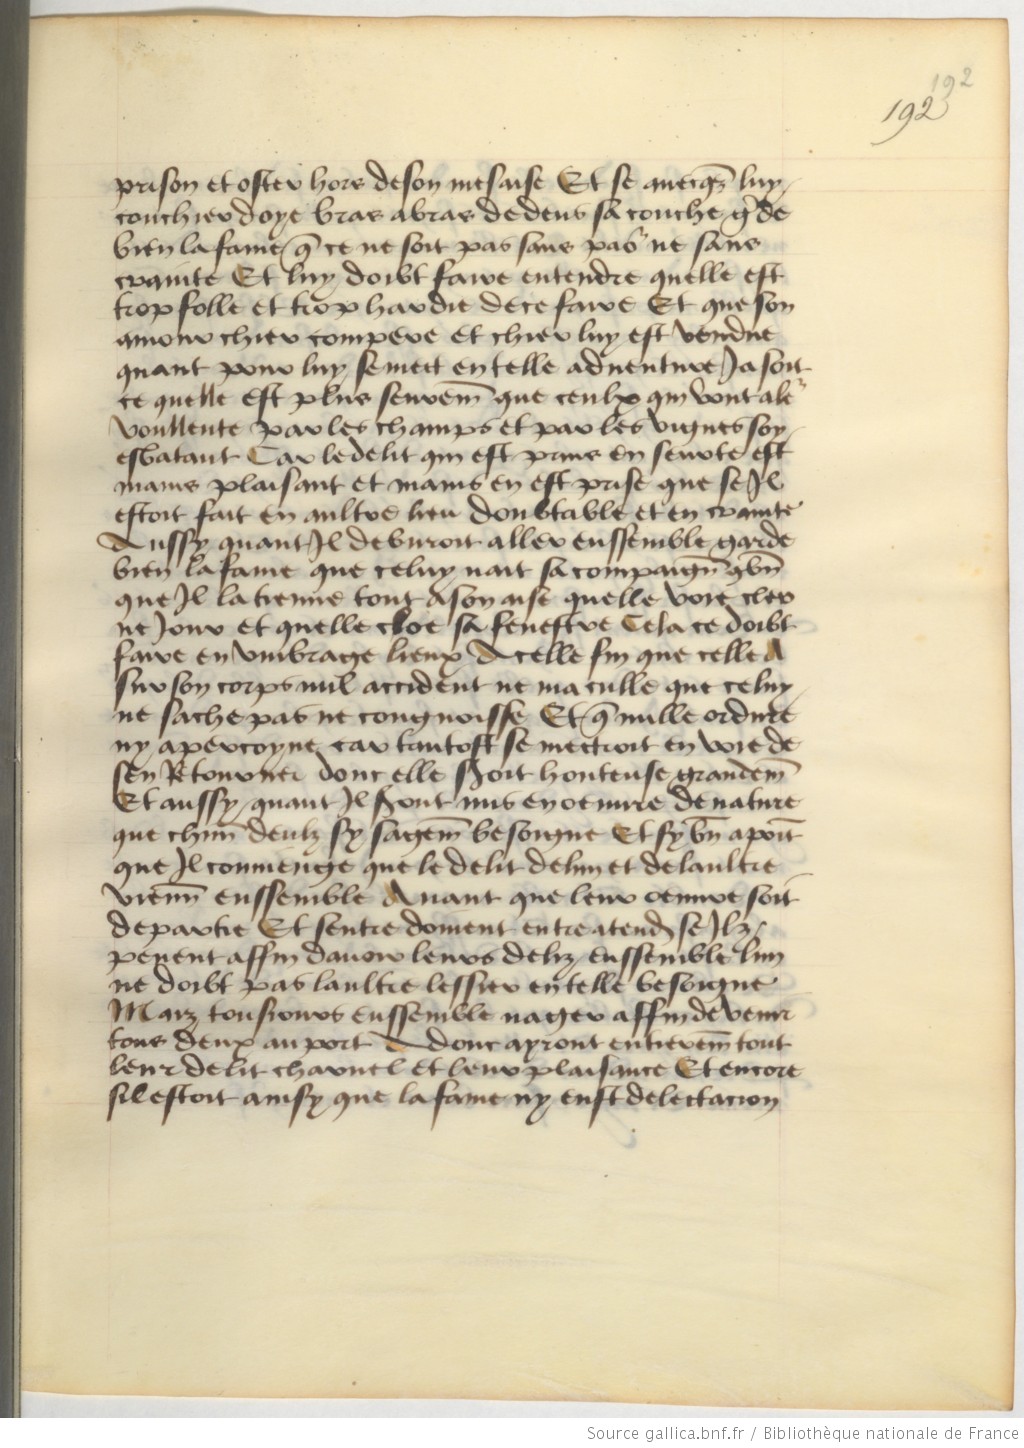 192
192
prison et oster hors de son mesaise Et se auecqz luy
couchier doye bras a bras dedens sa couche g̃de
bien la fame q̃ ce ne soit pas sans pao' ne sans
crainte Et luy doibt faire entendre quelle est
trop folle et trop hardie de ce faire Et que son
amour chier compere et chier luy est vendue
quant pour luy se mect en telle aduenture Ja soit
ce quelle est plus seurem̃ que ceulx qui vont ale'
voullente par les champs et par les vignes soy
esbatant Car le delit qui est prins en seurte est
mains plaisant et mains en est prise que se Jl
estoit fait en aultre lieu doubtable et en crainte
Aussy quant Jl deburoit aller enssemble garde
bien la fame que celuy nait sa compaign̄ q̃ bn̄
que Jl la tienne tout a son aise quelle voie cler
ne Jour et quelle cloe sa fenestre Cela ce doibt
faire en vmbrage lieux A celle fin que celle A
sur son corps nul accident ne maculle que celuy
ne sache pas ne congnoisse Et q̃ nulle ordure
ny apercoyue car tantost se mectroit en voie de
sen Retourner donc elle s̃oit honteuse grandem̃
Et aussy quant Jl s̃ont mis en oeuure de nature
que chũn deulz sy sagem̃ besoigne Et sy bn̄ a poĩt
que Jl conuienge que le delit de lun et de laultre
vienñ enssemble Auant que leur oeuure soit
departie Et sentre doiuent entre atendr̃ se Jlz
peuent affin dauoir leurs deliz enssemble lun
ne doibt pas laultre lessier en telle besoigne
Maiz tousiours enssemble nager affin de venir
tous deux au port Adonc ayront entierem̃ tout
leur delit charnel et leur plaisance Et encore
sil estoit ainsy que la fame ny eust delectacion
Source gallica.bnf.fr / Bibliothèque nationale de France